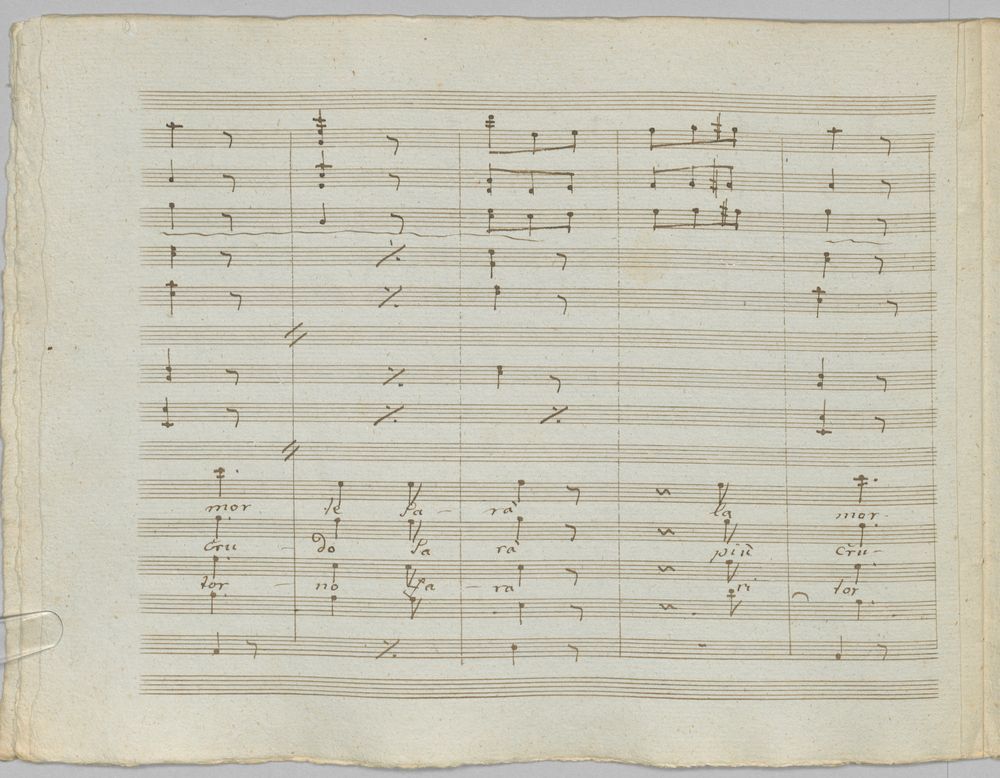 mor te sa - rà la mor
cru - do sa rà più cru -
tor - no sa - ra ri tor